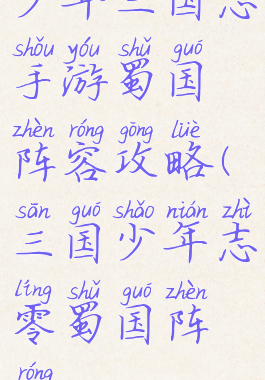 少年三国志
shǒu yóu shǔ guó
手游蜀国
zhèn róng gōng lüè
阵容攻略(
sān guó shǎo nián zhì
三国少年志
líng shǔ guó zhèn
零蜀国阵
róng